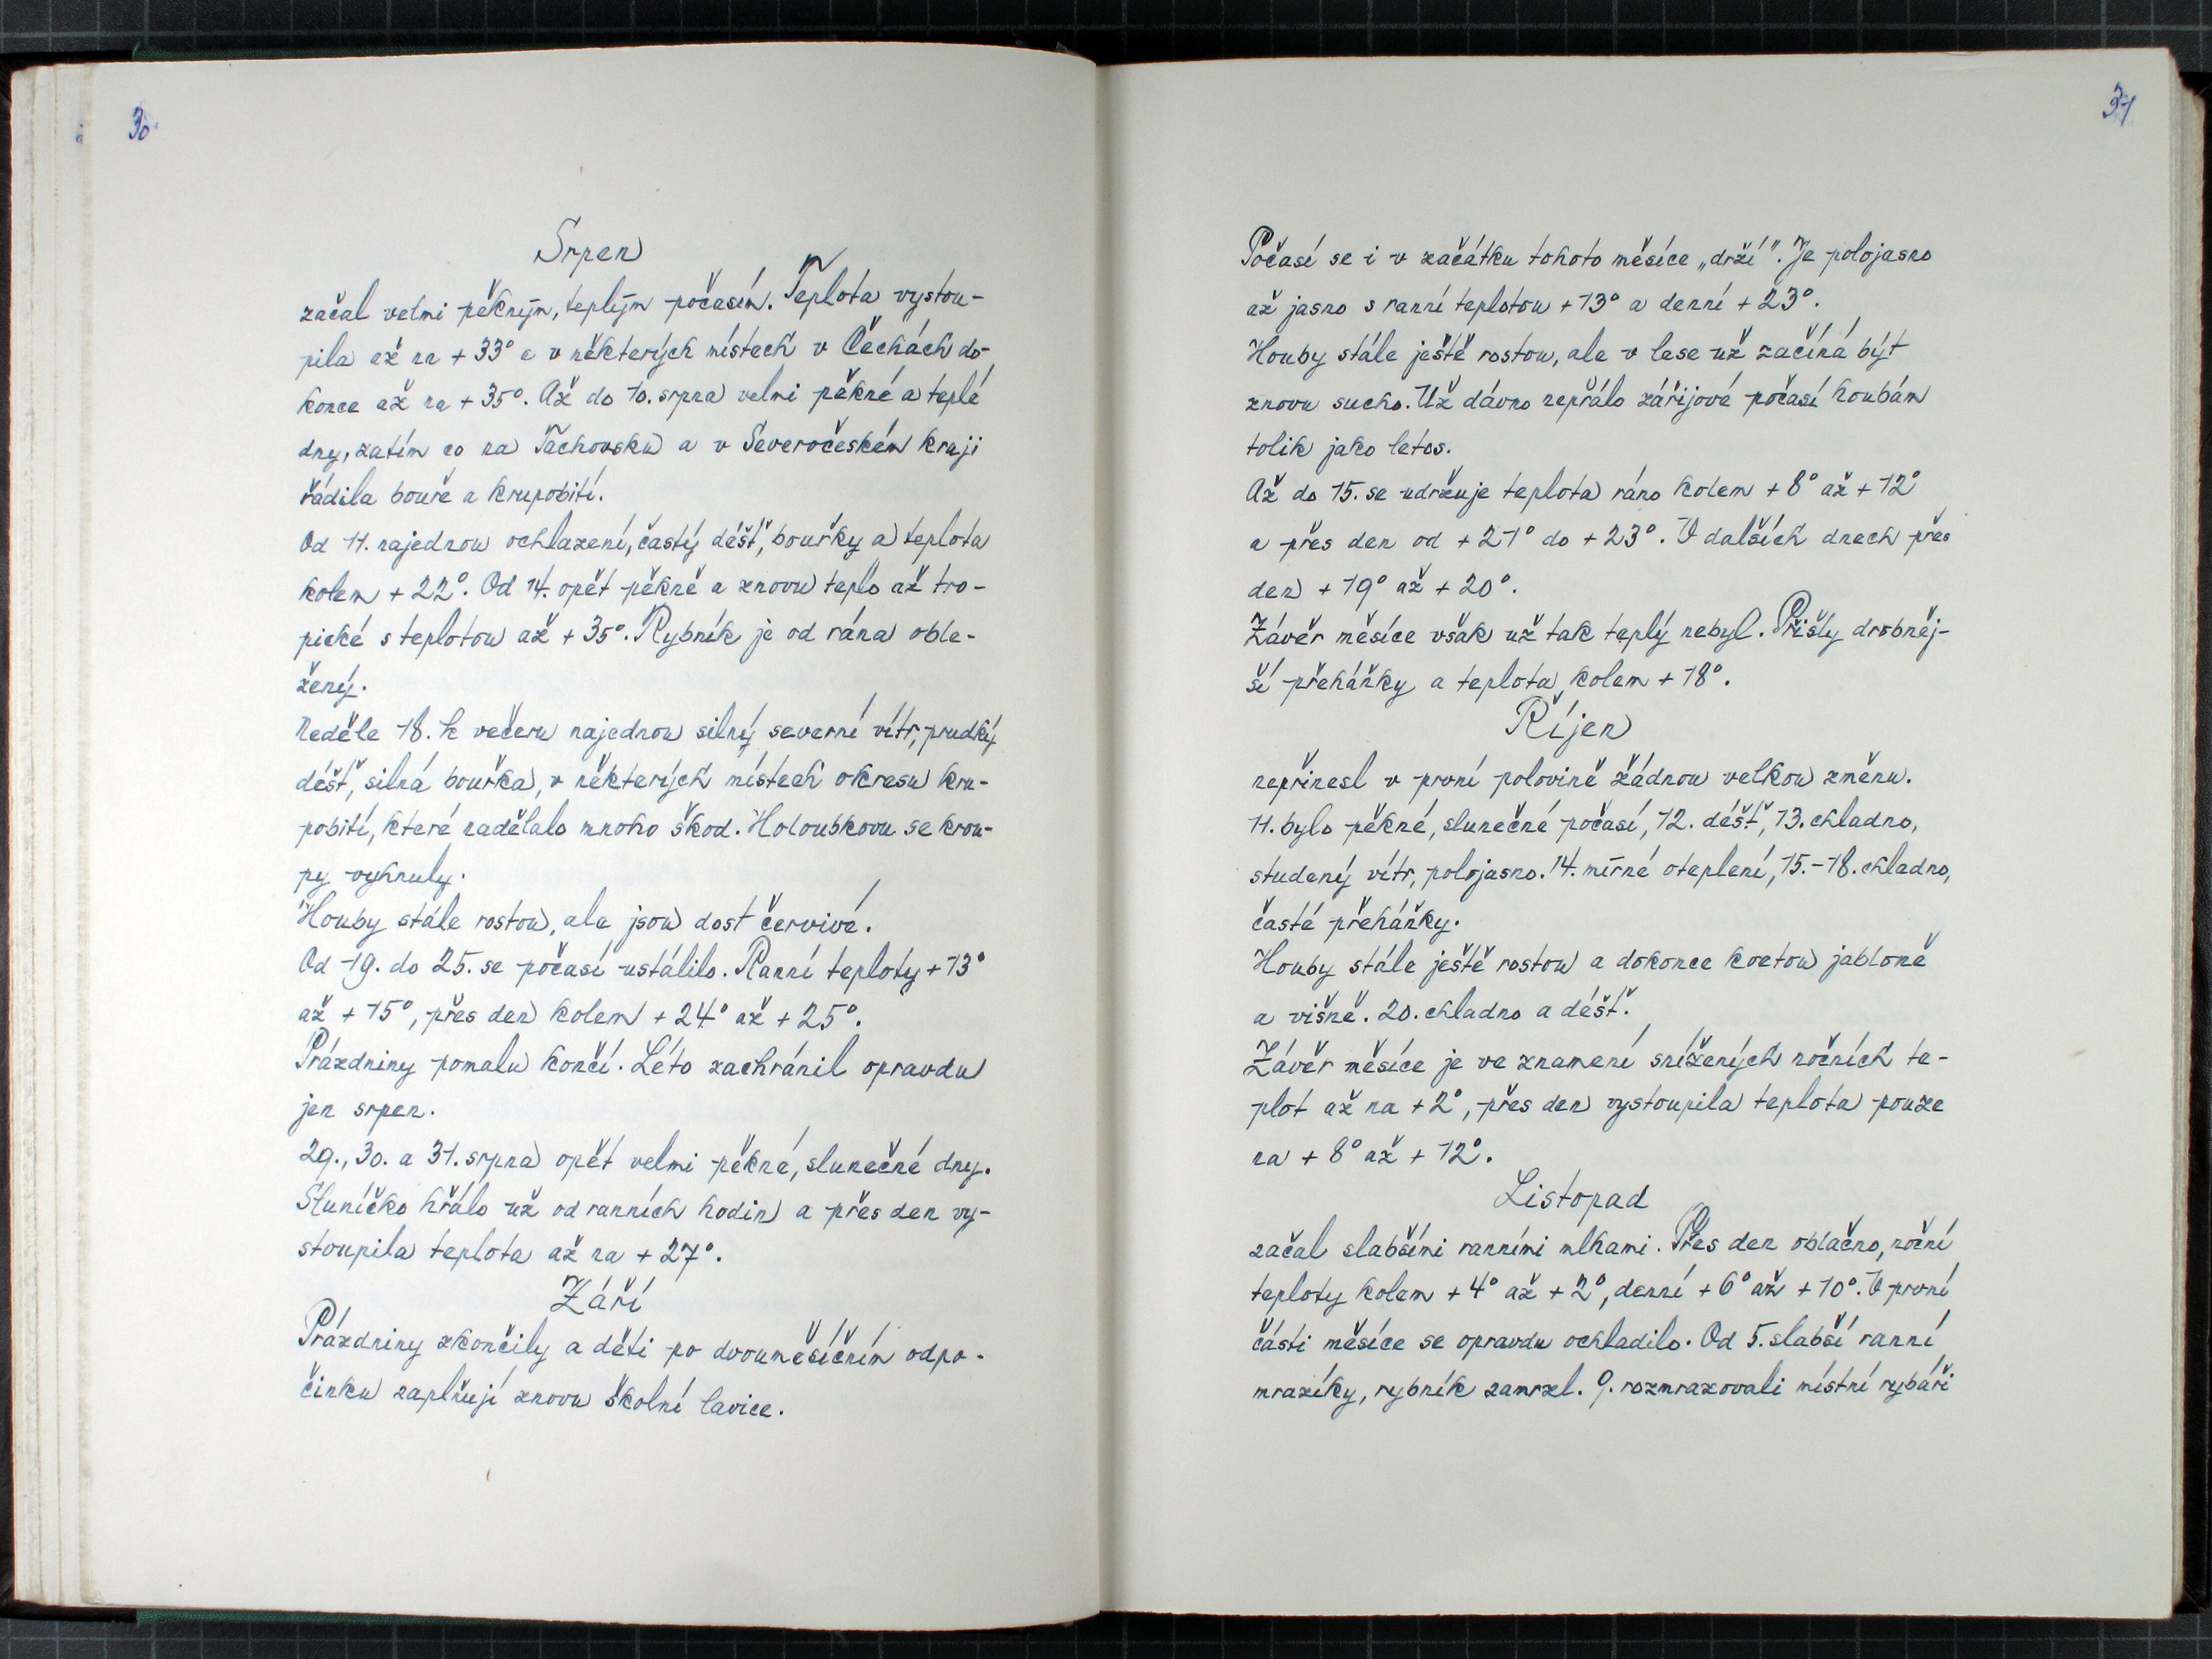 30
Srpen
začal velmi pěkným, teplým počasím. Teplota vystou-
pila až na + 33° a v některých místech v Čechách do-
konce až na + 35°. Až do 10. srpna velmi pěkné a teplé
dny, zatím co na Tachovsku a v Severočeském kraji
řádila bouře a krupobití.
Od 11. najednou ochlazení, častý déšť, bouřky a teplota
kolem + 22°. Od 14. opět pěkně a znovu teplo až tro-
pické s teplotou až + 35°. Rybník je od rána oble-
žený.
Neděle 18. k večeru najednou silný severní vítr, prudký
déšť, silná bouřka, v některých místech okresu kru-
pobití, které nadělalo mnoho škod. Holoubkovu se krou-
py vyhnuly.
Houby stále rostou, ale jsou dost červivé.
Od 19. do 25. se počasí ustálilo. Ranní teploty + 13°
až + 15°, přes den kolem + 24° až + 25°.
Prázdniny pomalu končí. Léto zachránil opravdu
jen srpen.
29., 30. a 31. srpna opět velmi pěkné, slunečné dny.
Sluníčko hřálo už od ranních hodin a přes den vy-
stoupila teplota až na + 27°.
Září
Prázdniny zkončily a děti po dvouměsíčním odpo-
činku zaplňují znovu školní lavice.
31
Počasí se i v začátku tohoto měsíce „drží". Je polojasno
až jasno s ranní teplotou + 13° a denní + 23°.
Houby stále ještě rostou, ale v lese už začíná být
znovu sucho. Už dávno nepřálo zářijové počasí houbám
tolik jako letos.
Až do 15. se udržuje teplota ráno kolem + 8° až + 12°
a přes den od + 21° do + 23°. V dalších dnech přes
den + 19° až + 20°.
Závěr měsíce však už tak teplý nebyl. Přišly drobněj-
ší přeháňky a teplota kolem + 18°.
Říjen
nepřinesl v první polovině žádnou velkou změnu.
11. bylo pěkné, slunečné počasí, 12. déšť, 13. chladno,
studený vítr, polojasno. 14. mírné oteplení, 15.-18. chladno,
časté přeháňky.
Houby stále ještě rostou a dokonce kvetou jabloně
a višně. 20. chladno a déšť.
Závěr měsíce je ve znamení snížených nočních te-
plot až na + 2°, přes den vystoupila teplota pouze
na + 8° až + 12°.
Listopad
začal slabšími ranními mlhami. Přes den oblačno, noční
teploty kolem + 4° až + 2°, denní + 6° až + 10°. V první
části měsíce se opravdu ochladilo. Od 5. slabší ranní
mrazíky, rybník zamrzl. 9. rozmrazovali místní rybáři